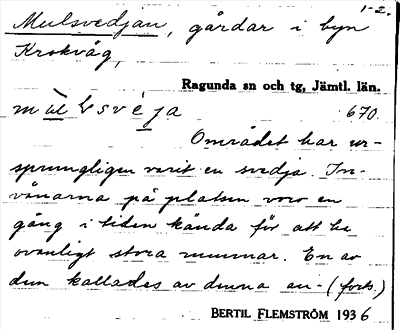 1-2.
Mulsvedjan, gårdar i byn
Krokvåg,
Ragunda sn och tg, Jämtl. län.
670.
Området har ur-
sprungligen varit en svedja. In-
vånarna på platsen voro en
gång i tiden kända för att ha
ovanligt stora munnar. En av
dem kallades av denna an- (forts.)
BERTIL FLEMSTRÖM 1936